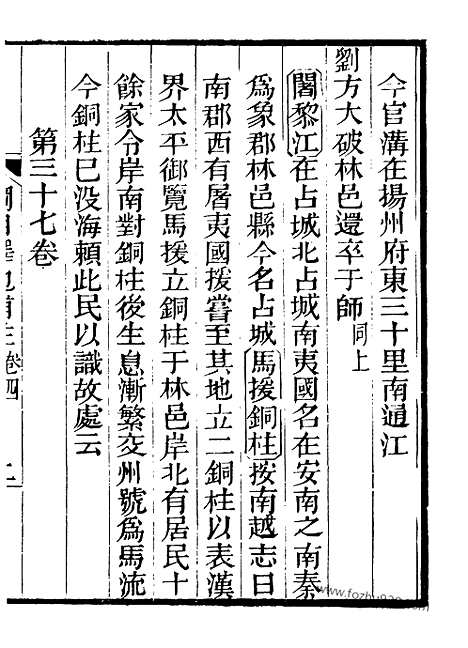 今官溝在揚州府東三十里南通江
劉方大破林邑還卒于師同上
闍黎江在占城北占城南夷國名在安南之南秦
爲象郡林邑縣今名占城馬援銅柱按南越志曰
南郡西有屠夷國援嘗至其地立二銅柱以表漢
界太平御覽馬援立銅柱于林邑岸北有居民十
餘家令岸南對銅柱後生息漸繁交州號爲馬流
今銅柱已没海賴此民以識故處云
第三十七卷
卷四
www.fozhu920.com